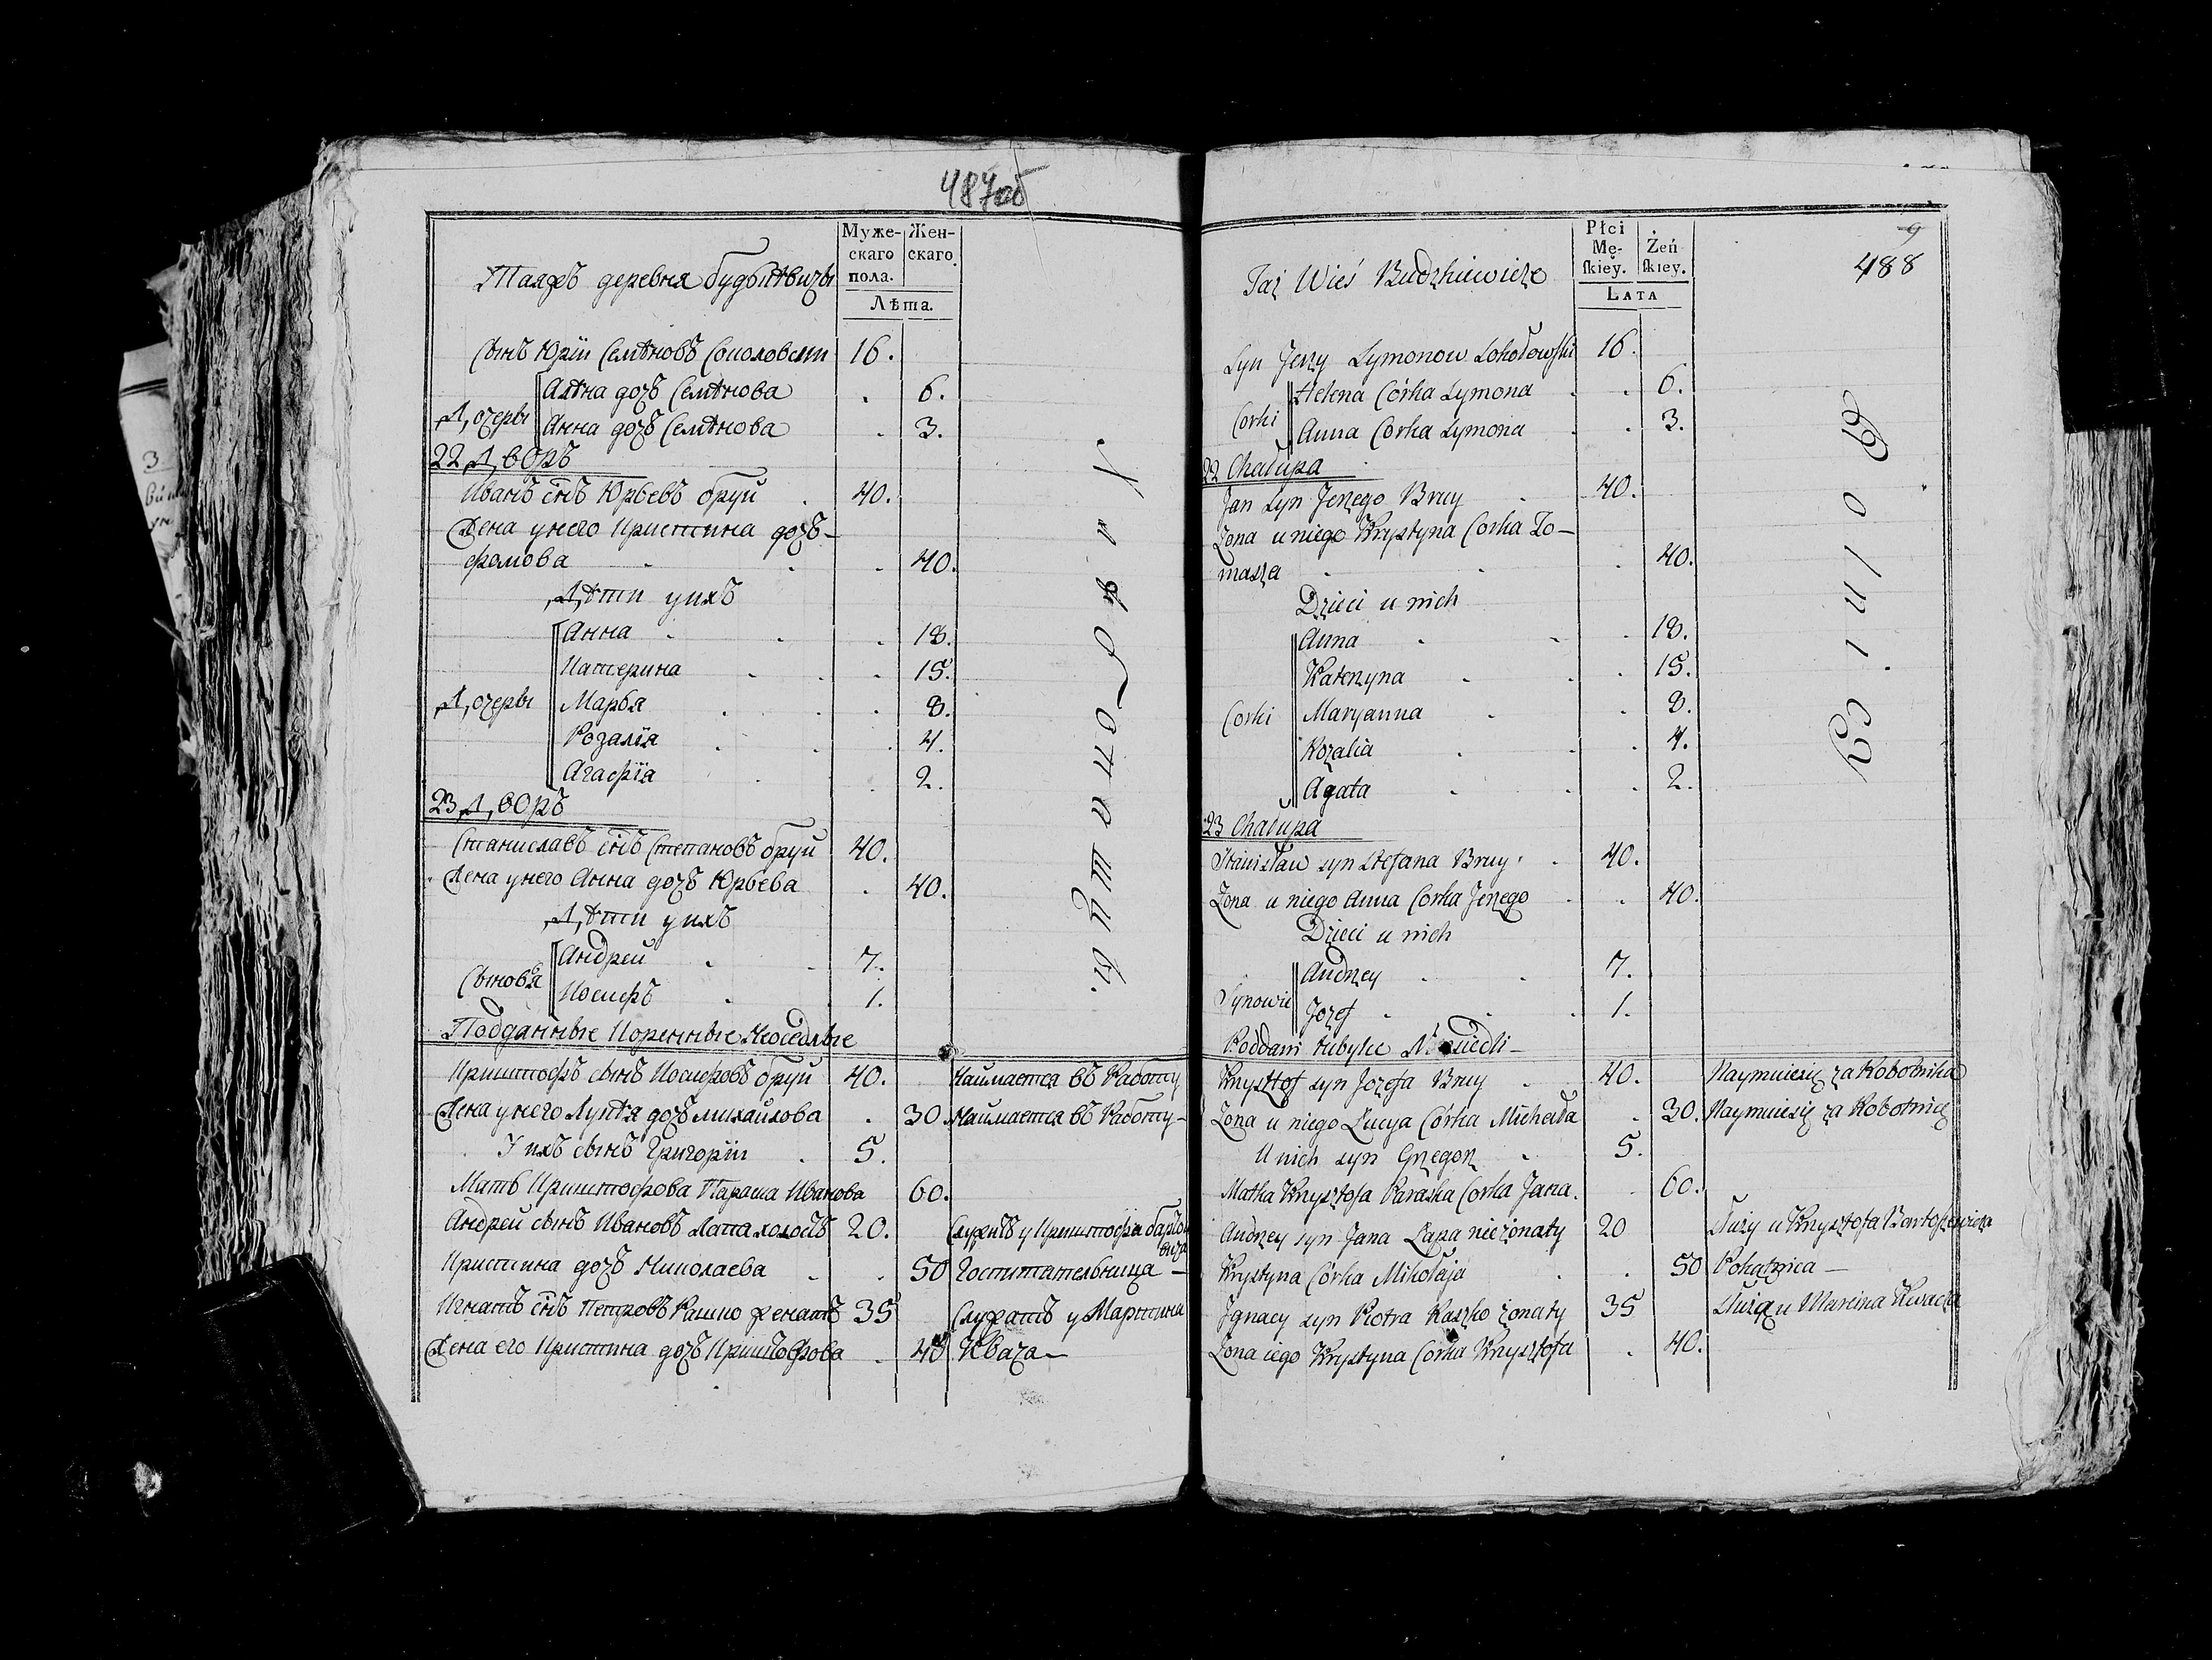 487об
Муже-
скаго
пола.
Жен-
скаго.
Лѣта.
Таяжъ деревня Будькѣвичы
Сынъ Юрїи Семѣновъ Соколовски 16.
Дочеры
Алѣна дочъ Семѣнова . 6.
Анна дочъ Семѣнова . 3.
22 Дворъ
Иванъ снъ Юрьевъ Бруй . 40.
Жена унего Кристина дочъ-
фомова . . . 40.
Дѣти у ихъ
Дочеры
Анна . . . 18.
Катерина . . . 15.
Марья . . . 8.
Розалїя . . . 4.
Агафїя . . 2.
23 Дворъ
Станиславъ снъ Степановъ Бруй 40.
Жена унего Анна дочъ Юрьева . 40.
Дѣти у ихъ
Сыновья
Андрей . . 7.
Иосифъ . . 1.
Подданные Коренные Неоседлые
Криштофъ сынъ Иосифовъ Бруй 40. Наймается въ Работу
Жена унего Луцѣя дочъ михайлова . 30. Наймается въ Работу-
У ихъ сынъ Григорїи . 5.
Мать Криштофова Параса Иванова 60.
Андрей сынъ Ивановъ Лапа холостъ 20. Служитъ у Криштофа Барто
вича
Кристина дочъ Николаева . . 50 Госпитательница —
Игнатъ снъ Петровъ Рашко женатъ 35 Служатъ у Мартина
Жена его Кристина дочъ Криштофова . 40 Квача —
9
488
Płci
Mę-
skiey.
Żeń
skiey.
Lata
Taż Wieś Budzkiewicze
Syn Jerzy Symonow Sokołowski 16.
Corki
Helena Córka Symona . . 6.
Anna Córka Symona . . 3.
22 Chałupa
Jan Syn Jerzego Bruy . 40.
Zona u niego Krystyna Corka To-
masza . . . 40.
Dzieci u nich
Corki
Anna . . . 18.
Katerzyna . . . 15.
Maryanna . . 8.
Rozalia . . . 4.
Agata . . . 2.
23 Chałupa
Stanisław syn Stefana Bruy . . 40.
Zona u niego Anna Corka Jerzego . . 40.
Dzieci u nich
Synowie
Andrzey . . 7.
Jozef . . . 1.
Poddani tubylce Nieosiedli —
Krysztof syn Jozefa Bruy . 40. Naymuiesię za Robotnika
Zona u niego Łucya Córka Michała . 30. Naymuiesię za Robotnicę
U nich syn Grzegorz . 5.
Matka Krysztofa Paraska Corka Jana. . 60.
Andrzey syn Jana Łapa nieżonaty 20 Służy u Krysztofa Bartoszewicza
Krystyna Córka Mikołaja . . 50 Pokatnica —
Jgnacy syn Piotra Raszko żonaty 35 Służą u Marcina Kwacza
Zona iego Krystyna Córka Krysztofa . 40.